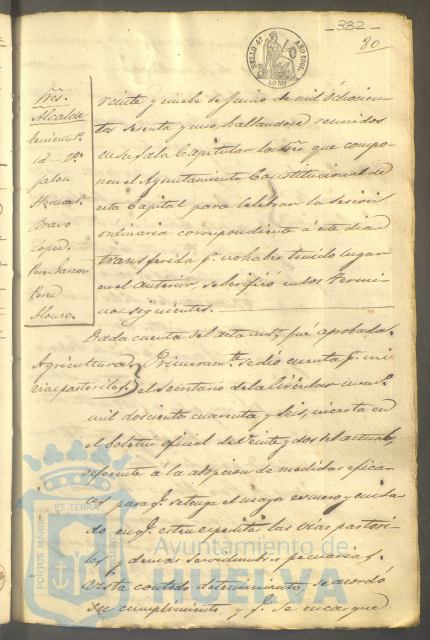 332
80
SELLO 4º AÑO 1861
40 Ms
Sres.
Alcalde
Teniente 1º
id - 2º
Galan
Bravo
Lopez
Perez
Alonso.
veinte y nuebe de Junio de mil ochocien-
tos sesenta y uno, hallandose reunidos
en su Sala Capitular los Sres que compo-
nen el Ayuntamiento Constitucional de
esta Capital para celebrar la sesion
ordinaria correspondiente á este dia
transferida pr. no haber tenido lugar
en el anterior, se berificó en los termi-
nos siguientes.
Dada cuenta del acta antr. fué aprobada.
Agricultura
vias pastoriles.
Primeramte. se dió cuenta pr. mi
el Secretario de la Circular numº.
mil doscientos cuarenta y seis, inserta en
el boletin oficial de veinte y dos del actual,
referente á la adopcion de medidas efica-
ces para qe. se tenga el mayor esmero y cuida-
do en qe. esten expeditas las vias pastori-
les y demas servidumbres pecuarias,
vista con todo detenimiento, se acordó
su cumplimiento y qe. se encargue
PORTUS MARIS ET TERRAE CUSTODIA
Ayuntamiento de
HUELVA